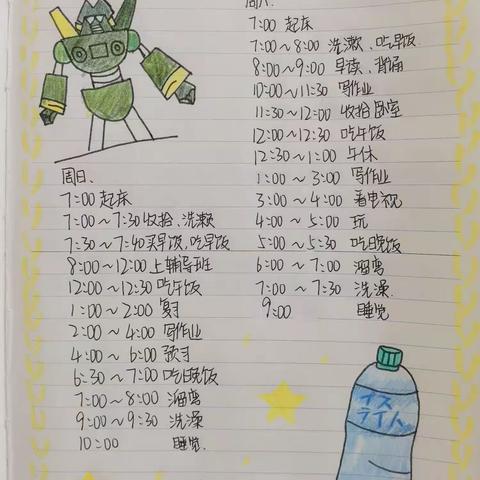 周六、
7:00 起床
7:00～8:00 洗漱、吃早饭
8:00～9:00 早读、背诵
10:00～11:30 写作业
11:30～12:00 收拾卧室
12:00～12:30 吃午饭
12:30～1:00 午休
1:00～3:00 写作业
3:00～4:00 看电视
4:00～5:00 玩
5:00～5:30 吃晚饭
6:00～7:00 溜弯
7:00～7:30 洗澡
9:00 睡觉
周日、
7:00 起床
7:00～7:30 收拾、洗漱
7:30～7:40 买早饭、吃早饭
8:00～12:00 上辅导班
12:00～12:30 吃午饭
1:00～2:00 复习
2:00～4:00 写作业
4:00～6:00 预习
6:30～7:00 吃晚饭
7:00～8:00 溜弯
9:00～9:30 洗澡
10:00 睡觉
イス
ライム